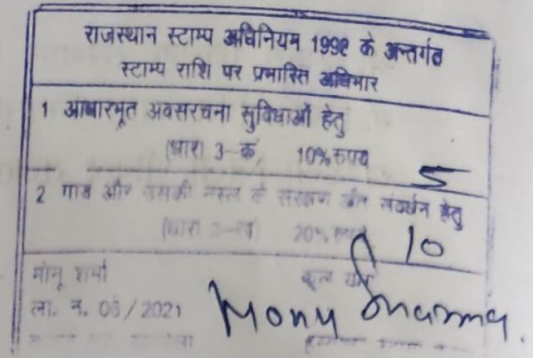 राजस्थान स्टाम्प अधिनियम 1998 के अन्तर्गत
स्टाम्प राशि पर प्रभारित अधिभार
1 आधारभूत अवसरचना सुविधाओं हेतु
(धारा 3-क, 10% रुपय 5
2 गाय और उसकी नस्ल के संरक्षण और संवर्धन हेतु
(धारा 3-ख) 20% 10
मोनू शर्मा कुल
ला. न. 03/2021 Monu Sharma